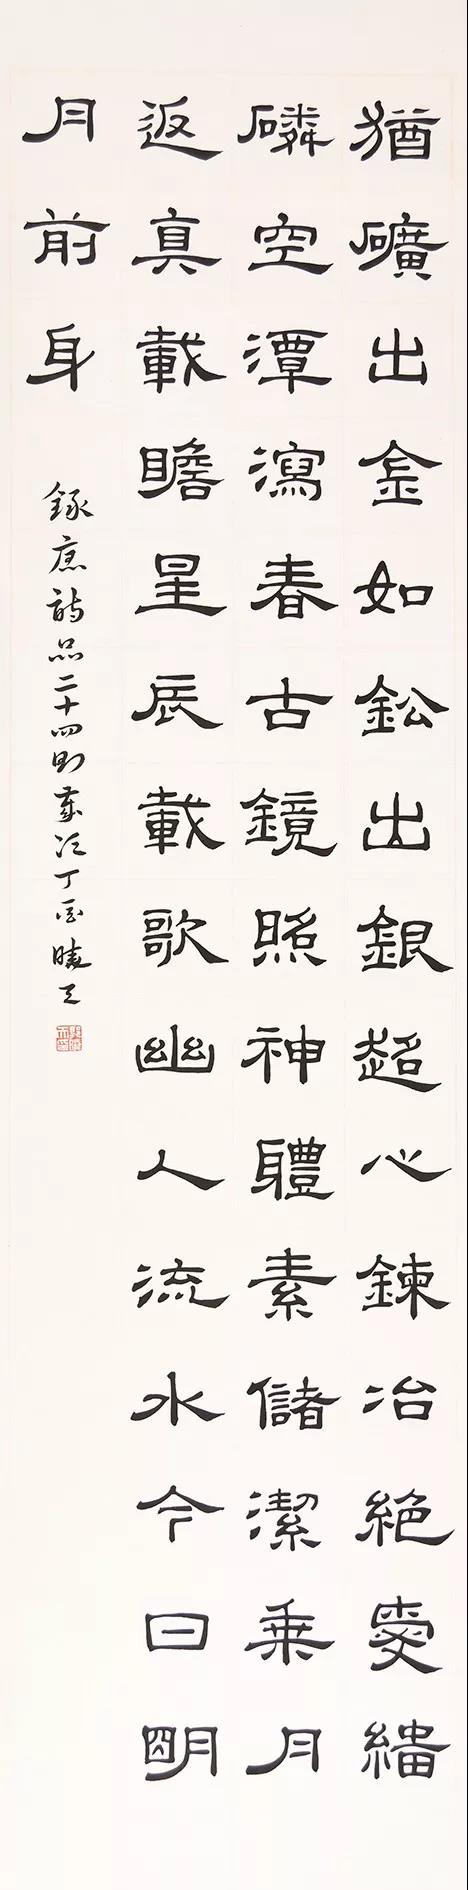 猶礦出金如鈆出銀超心鍊冶絕愛緇
磷空潭瀉春古鏡照神軆素儲潔乗月
返真載瞻星辰載歌幽人流水今日明
月前身
錄唐詩品二十四則歲次丁酉曉天